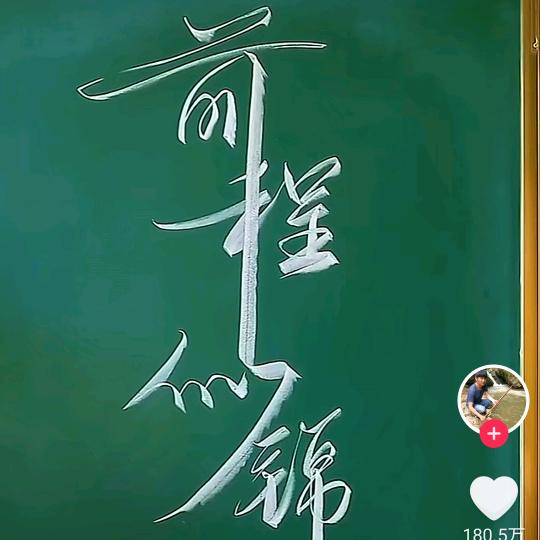 前程似锦
180.5万